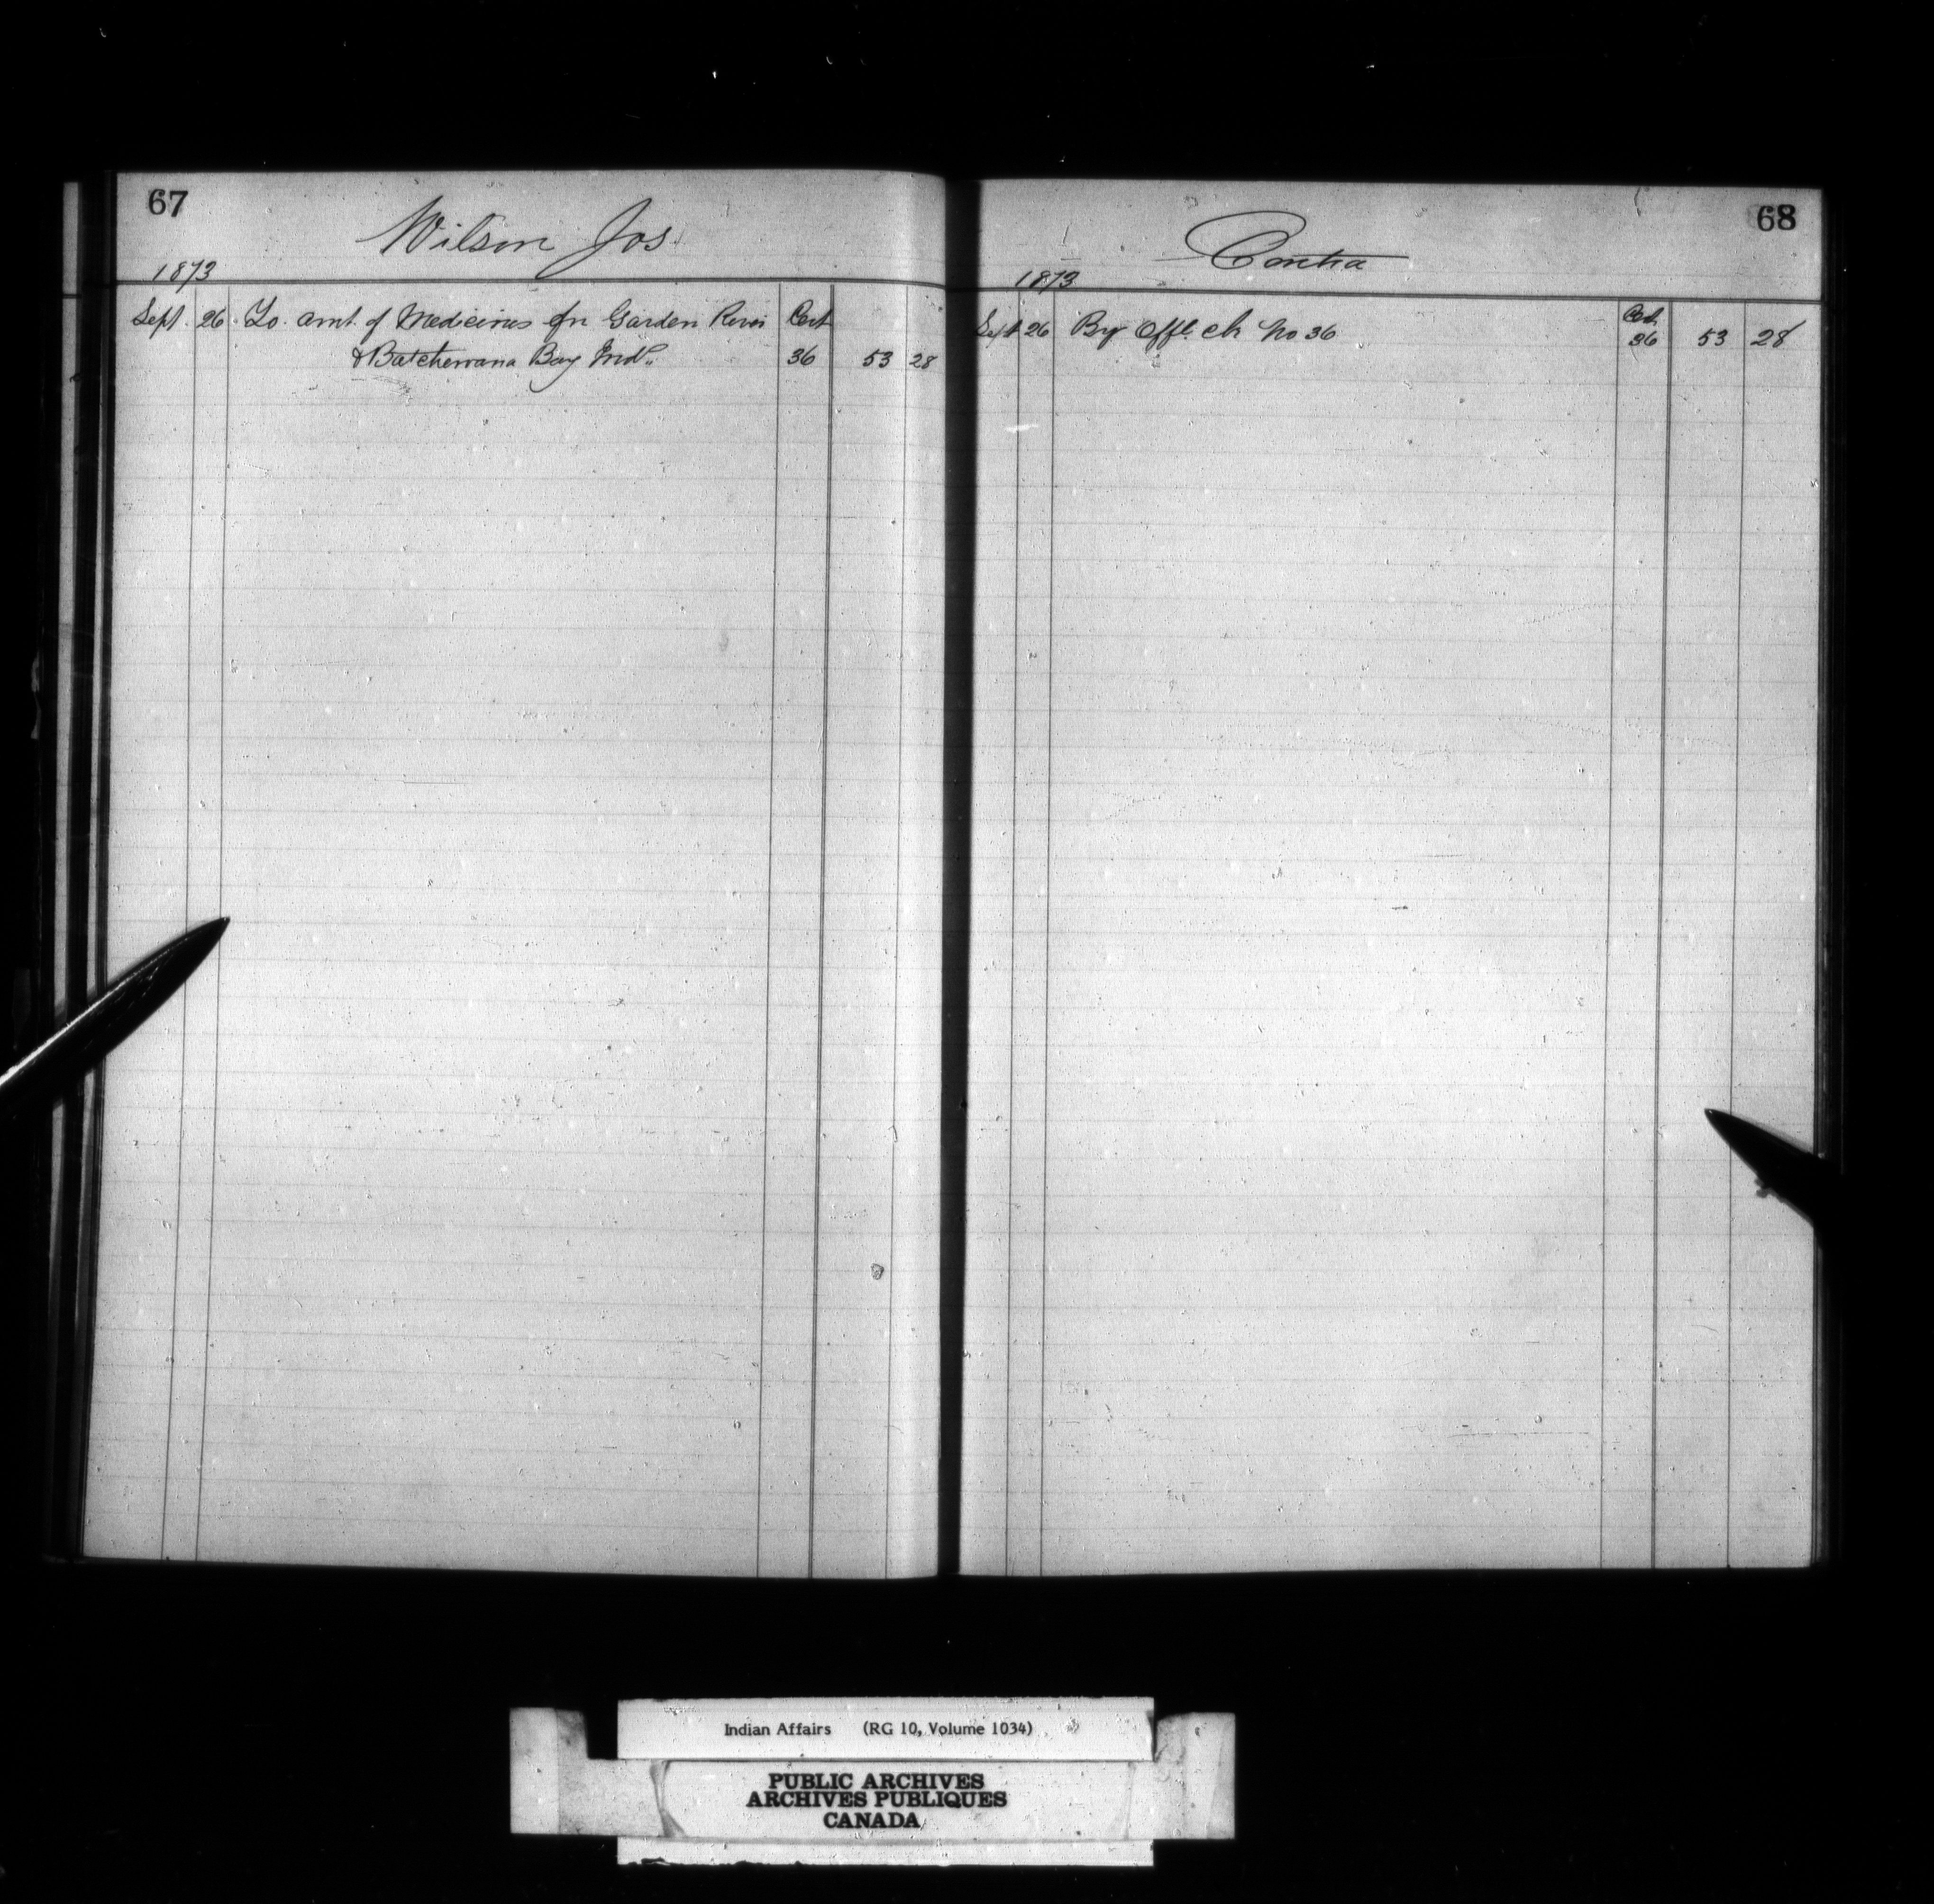 67
Wilson Jos.
1873
Sept. 26 To. amt. of Medicines for Garden River Cert
& Batchewana Bay Inds. 36 53 28
68
Contra
1873
Sept 26 By Offl. ch No 36 Cert. 36 53 28
Indian Affairs (RG 10, Volume 1034)
PUBLIC ARCHIVES
ARCHIVES PUBLIQUES
CANADA